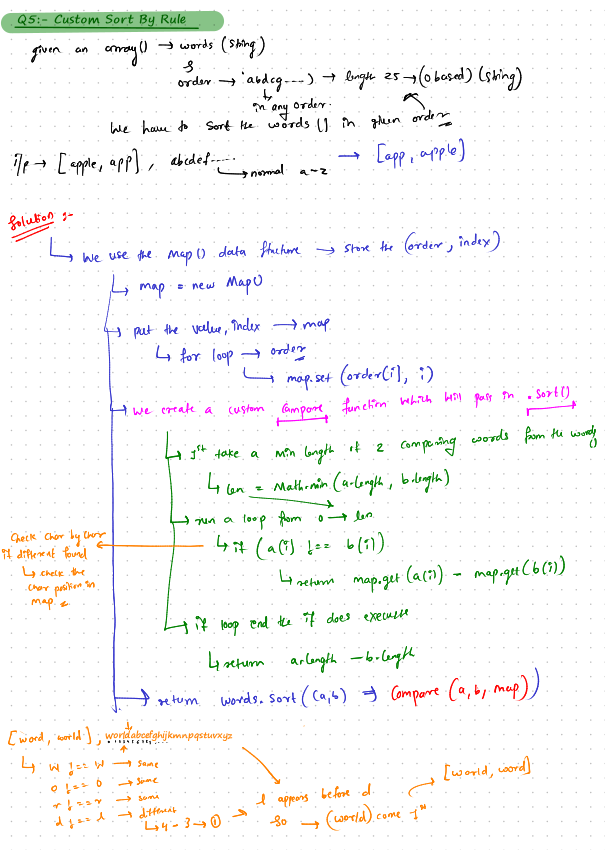 Q5:- Custom Sort By Rule
given an array() → words (string)
&
order → 'abdcg----) → length 25 → (0 based) (string)
in any order.
We have to sort the words () in given order
i/p → [apple, app] , abcdef----- → [app, apple]
normal a-z
Solution :-
We use the Map() data structure → store the (order, index)
map = new Map()
put the value, index → map
for loop → order
map.set (order[i], i)
We create a custom Compare function which will pass in .sort()
1st take a min length of 2 comparing words from the words
()
len = Math.min (a.length, b.length)
run a loop from 0 → len
Check char by char
if different found
if (a(i) !== b(i))
↳ check the
char position in
map
return map.get (a(i)) - map.get(b(i))
if loop end the if does execute
return a.length - b.length
return words.sort ((a,b) ⇒ Compare (a, b, map))
[word, world] , worldabcefghijkmnpqstuvxyz
W !== W → same
o !== o → same
r !== r → same
d !== l → different
4 - 3 → 1 →
l appears before d.
So → (world) come 1st
[world, word]